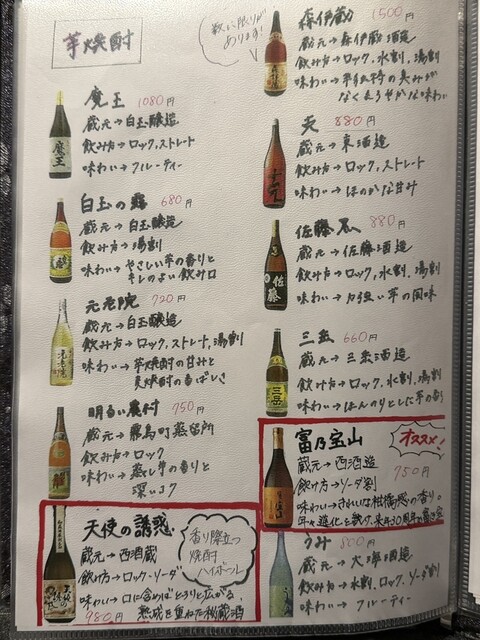 芋焼酎
数に限りが
あります!
魔王 1080円
蔵元→白玉醸造
飲み方→ロック、ストレート
味わい→フルーティー
白玉の露 680円
蔵元→白玉醸造
飲み方→湯割
味わい→やさしい芋の香りと
キレのよい飲み口
元老院 720円
蔵元→白玉醸造
飲み方→ロック、ストレート、湯割
味わい→芋焼酎の甘みと
麦焼酎の香ばしさ
明るい農村 750円
蔵元→霧島町蒸留所
飲み方→ロック
味わい→蒸し芋の香りと
深いコク
天使の誘惑
香り際立つ
焼酎
ハイボール
蔵元→西酒蔵
飲み方→ロック・ソーダ
味わい→口に含めばとろりと広がる、
980円 熟成を重ねた秘蔵酒
森伊蔵 1500円
蔵元→森伊蔵酒造
飲み方→ロック、水割、湯割
味わい→
なくまろやかな味わい
880円
蔵元→東酒造
飲み方→ロック、ストレート
味わい→ほのかな甘み
佐藤黒 880円
蔵元→佐藤酒造
飲み方→ロック、水割、湯割
味わい→力強い芋の風味
三岳 660円
蔵元→三岳酒造
飲み方→ロック、水割、湯割
味わい→ほんのりとした芋の香
富乃宝山 オススメ!
蔵元→西酒造
750円
飲み方→ソーダ割
味わい→きれいな柑橘感の香り。
年々進化を続け、来年30周年の富乃宝
うみ 800円
蔵元→大海酒造
飲み方→水割、ロック、ソーダ割
味わい→フルーティー